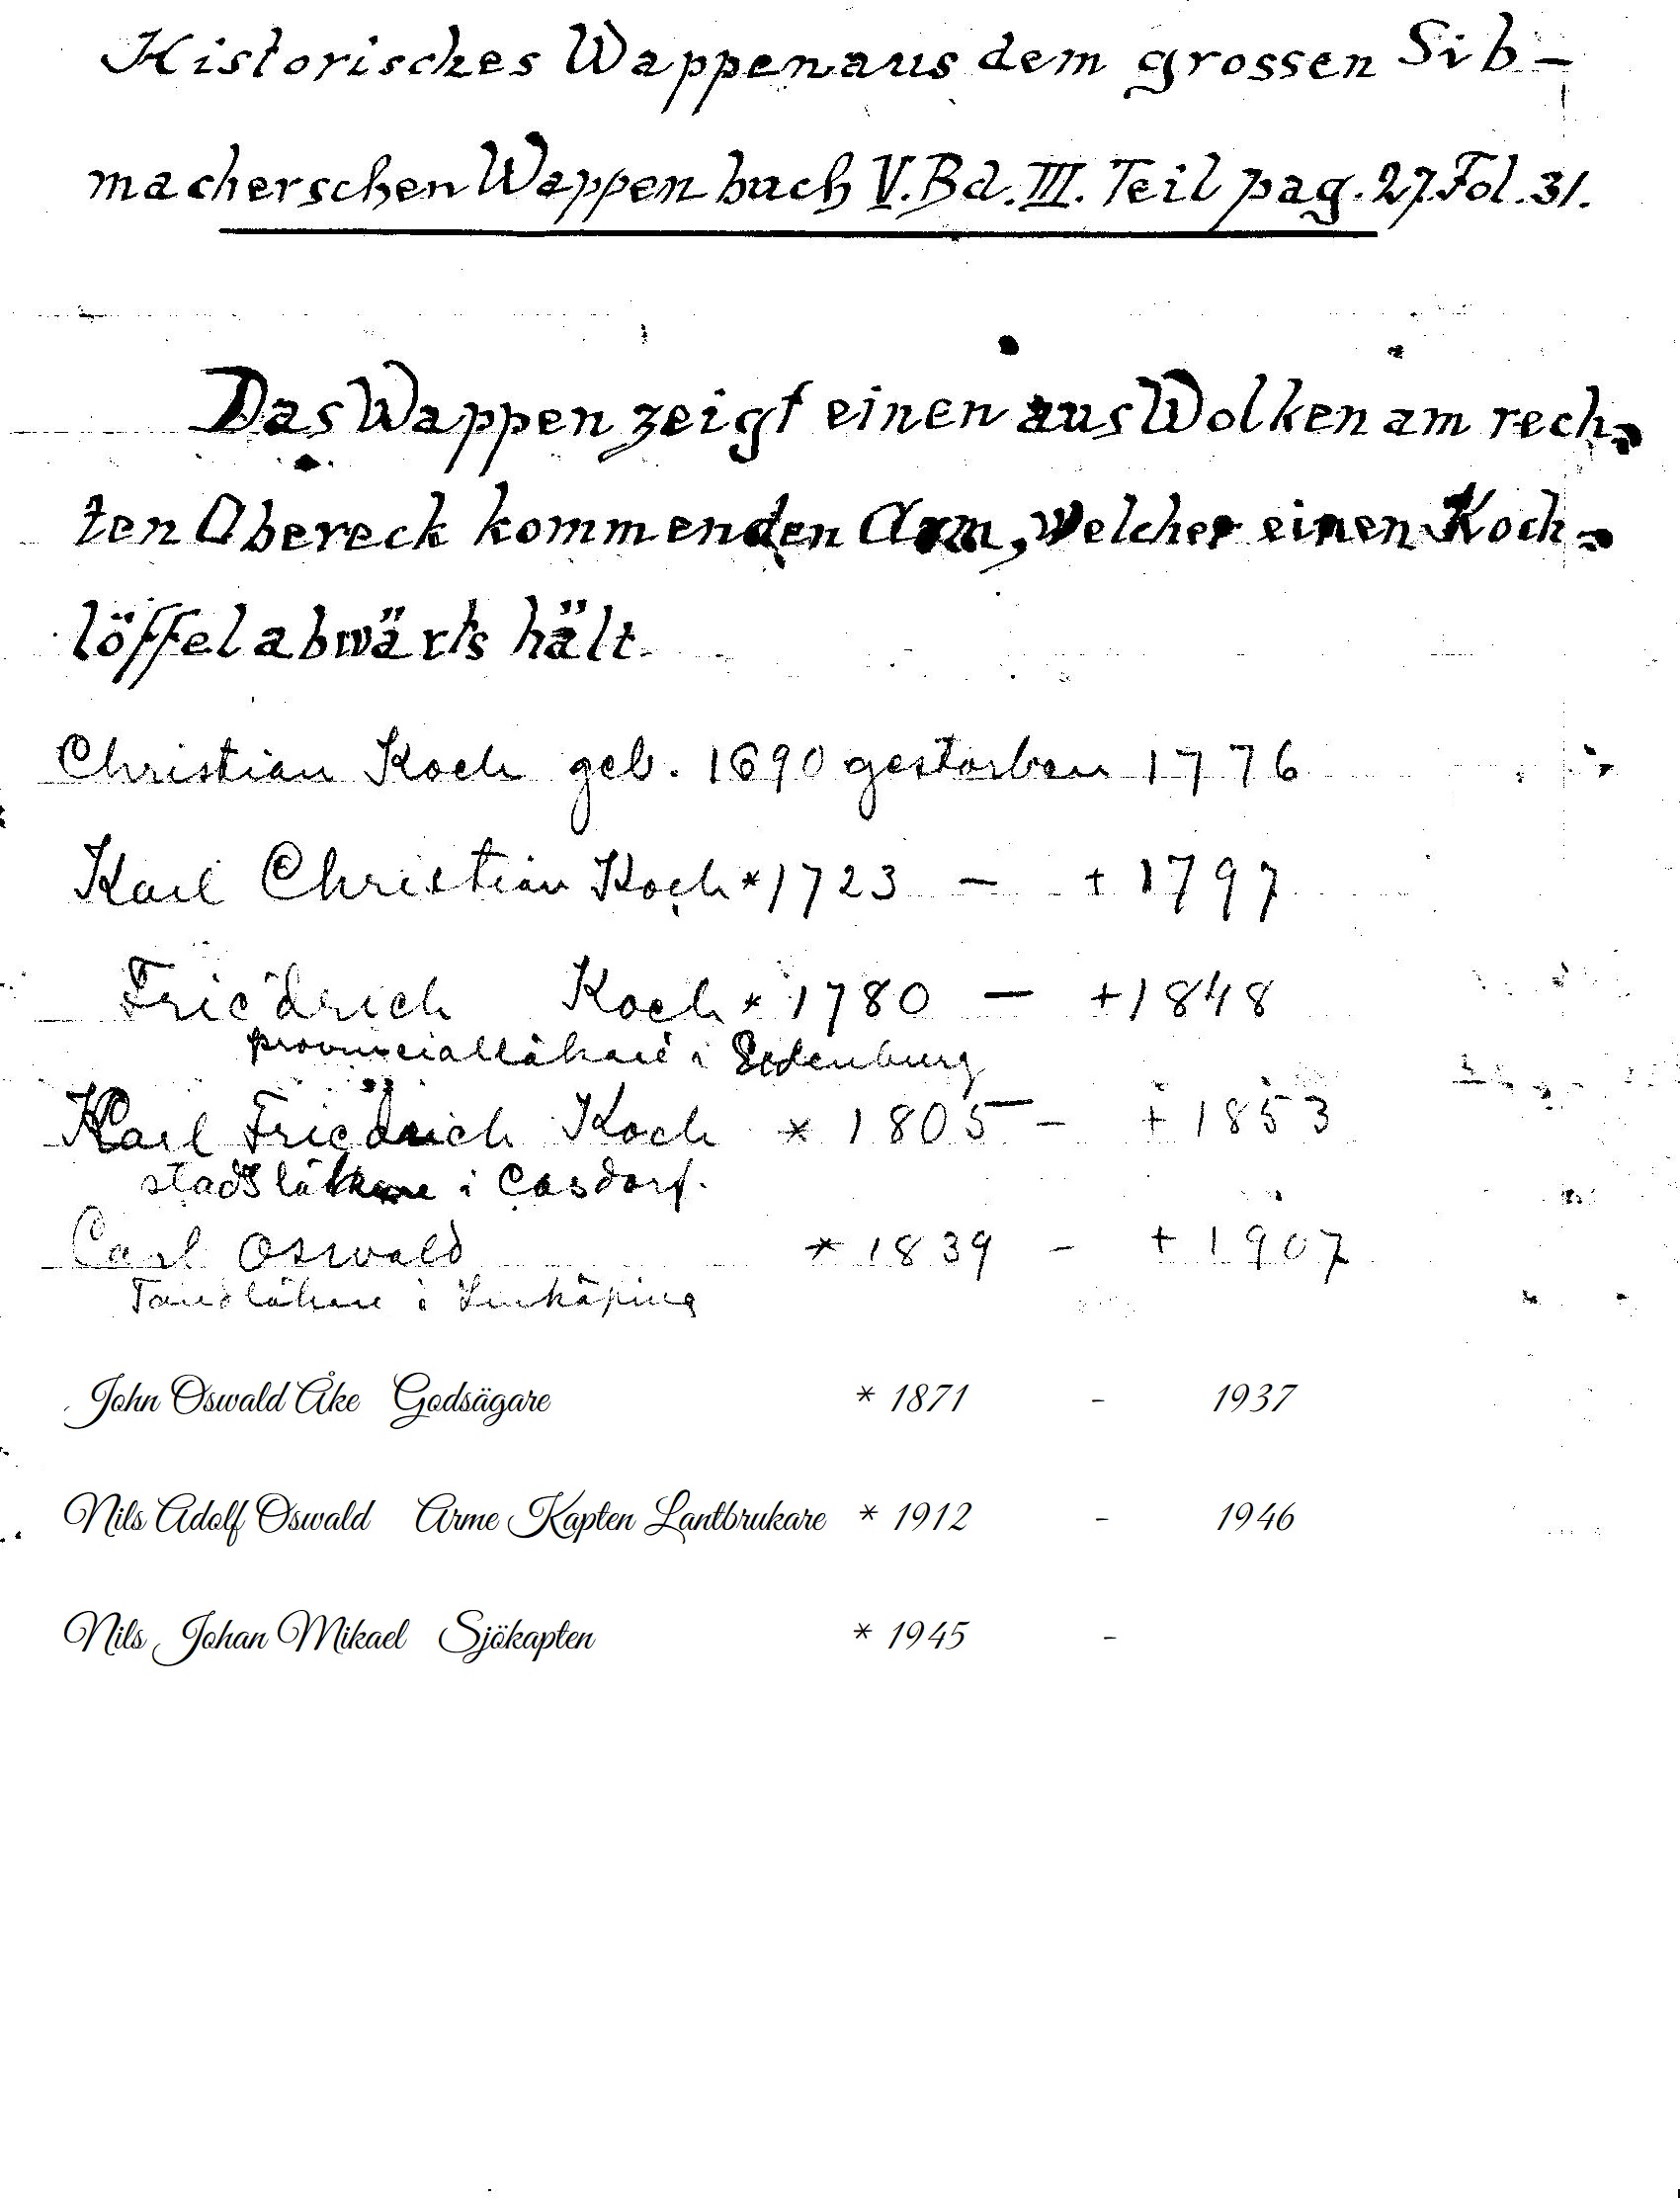 Historisches Wappen aus dem grossen Sib-
macherschen Wappenbuch V. Bd. III. Teil pag. 27. Fol. 31.
Das Wappen zeigt einen aus Wolken am rech-
ten Obereck kommenden Arm, welcher einen Koch-
löffel abwärts hält.
Christian Koch geb. 1690 gestorben 1776
Karl Christian Koch * 1723 - + 1797
Friedrich Koch * 1780 - + 1848
provinciälläkare i
Karl Friedrich Koch * 1805 - + 1853
stadsläkare i Casdorf.
Carl Oswald * 1839 - + 1907
Tandläkare i Linköping
John Oswald Åke Godsägare * 1871 - 1937
Nils Adolf Oswald Arme Kapten Lantbrukare * 1912 - 1946
Nils Johan Mikael Sjökapten * 1945 -